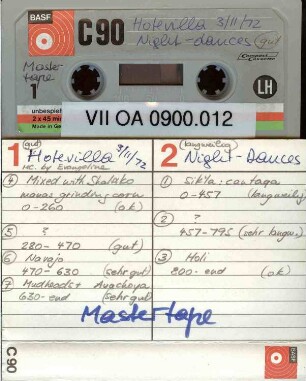 BASF
C 90
Hotevilla 3/11/72
Night-dances (gut)
Master-
tape
1
Compact
Cassette
unbespielt
2 x 45 min
Made in
LH
VII OA 0900.012
1 (gut) Hotevilla 3/11/72
rec. by Evangeline
④ Mixed with Shalako
manas grinding corn
0-260 (ok)
⑤ ?
280-470 (gut)
⑥ Navajo
470-630 (sehr gut)
⑦ Mudheads +
630-end (sehr gut)
2 (langweilig) Night-Dances
① :
0-457 (langweilig)
② ?
457-795 (sehr langw.)
③ Holi
800-end (ok)
Mastertape
C 90
BASF